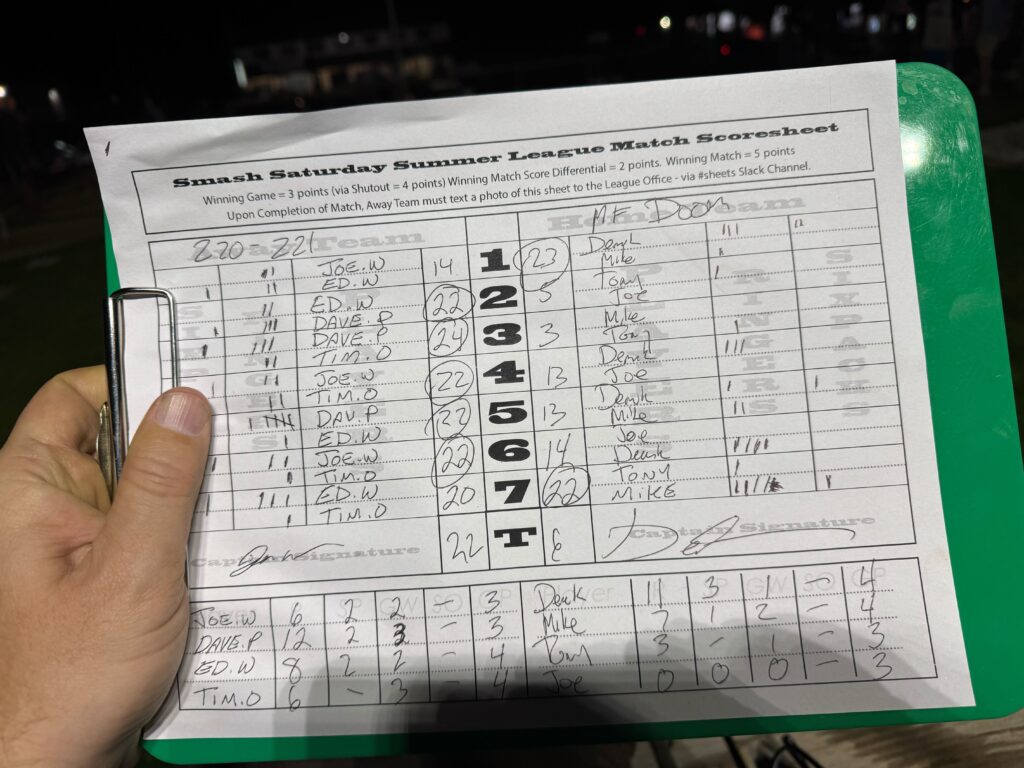 Smash Saturday Summer League Match Scoresheet
Winning Game = 3 points (via Shutout = 4 points) Winning Match Score Differential = 2 points. Winning Match = 5 points
Upon Completion of Match, Away Team must text a photo of this sheet to the League Office - via #sheets Slack Channel.
820 a 821 Team Home Team MF DOOM
JOE.W 14 1 23 Derek
ED.W Mike
ED.W 22 2 5 Tony
DAVE.P Joe
DAVE.P 24 3 3 Mike
TIM.O Tony
JOE.W 22 4 13 Derek
TIM.O Joe
DAV.P 22 5 13 Derek
ED.W Mike
JOE.W 22 6 14 Joe
TIM.O Derek
ED.W 20 7 22 TONY
TIM.O MIKE
Captain Signature 22 T 6 Captain Signature
GW SO GP IR GW SO GP
JOE.W 6 2 2 — 3 Derek 3 1 — 4
DAVE.P 12 2 3 — 3 Mike 7 1 2 — 4
ED.W 8 2 2 — 4 Tony 3 — 1 — 3
TIM.O 6 — 3 — 4 Joe 0 0 0 — 3